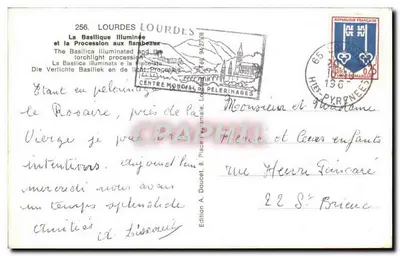 256. LOURDES
La Basilique Illuminée
et la Procession aux flambeaux
The Basilica illuminated and the
torchlight procession
La Basilica illuminata e la
Die Verlichte Basiliek an de
LOURDES
CENTRE MONDIAL PELERINAGES
REPUBLIQUE FRANÇAISE
65
196
Htes PYRENEES
Edition A. Doucet, 8, Place
Etant en pelerinage
le Rosaire, près de la
Vierge je prie
intentions. aujourd'hui
mercredi nous avons
un temps splendide
amitiés
Monsieur et Madame
et leurs enfants
rue Henri
22 St Brieuc